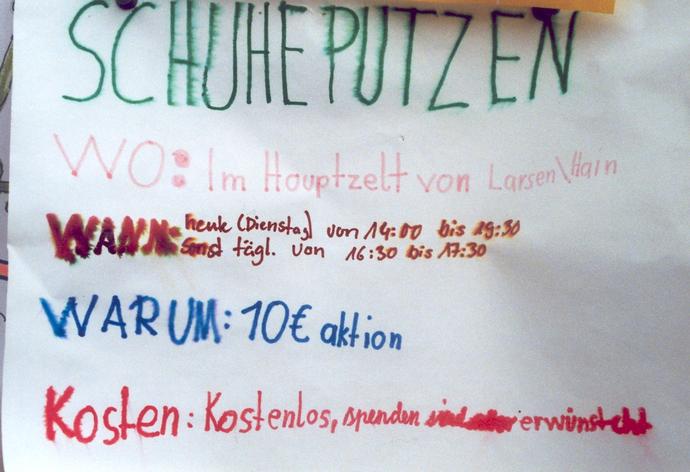 SCHUHEPUTZEN
WO: Im Hauptzelt von Larsen\Hain
WANN: heute (Dienstag) von 14:00 bis 19:30
sonst tägl. von 16:30 bis 17:30
WARUM: 10€ aktion
Kosten: Kostenlos, spenden sind erwünscht